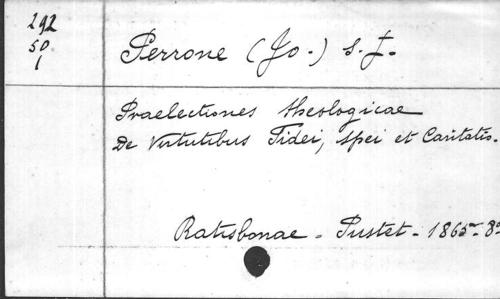 292
50
1
Perrone (Jo.) S. J.
Praelectiones theologicae
De Virtutibus Fidei, Spei et Caritatis.
Ratisbonae - Pustet - 1865 - 8º